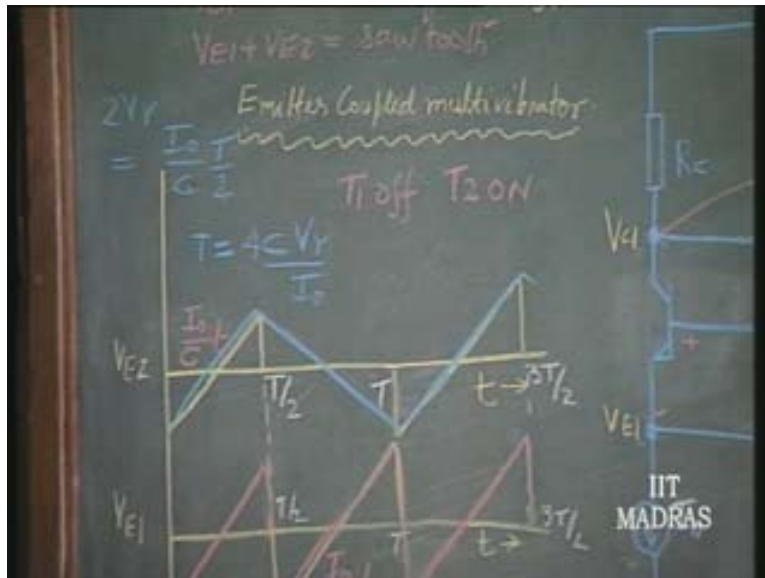 VE1+VE2 = sawtooth
Emitter Coupled multivibrator
2Vγ
= I0/C T/2
T1 off T2 ON
T = 4CVγ/I0
RC
VC1
I0/C t
VE2
T/2
T
t → 3T/2
+
VE1
-
VE1
T/2
T
t →
3T/2
IIT
MADRAS